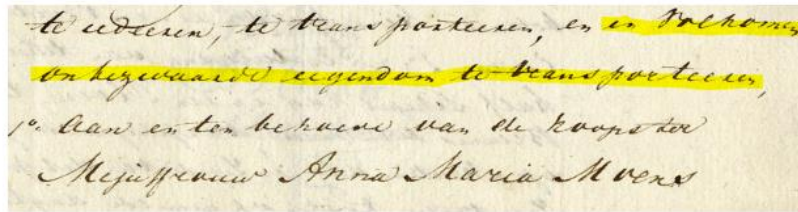 te cedeeren, te transporteeren, en in Volkomen
onbezwaarde eigendom te transporteeren,
1o. Aan en ten behoeve van de Koopster
Mejuffrouw Anna Maria Moens